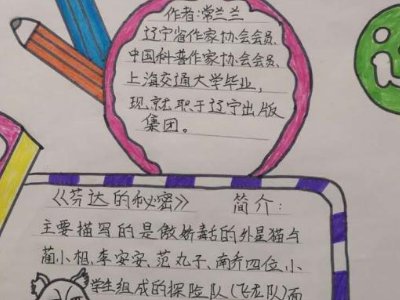 作者:常兰兰
辽宁省作家协会会员、
中国科普作家协会会员、
上海交通大学毕业,
现就职于辽宁出版
集团。
《芬达的秘密》 简介:
主要描写的是傲娇毒舌的外星猫与
蔺小相、车安安、范丸子、南乔四位小
学生组成的探险队(飞龙队)面